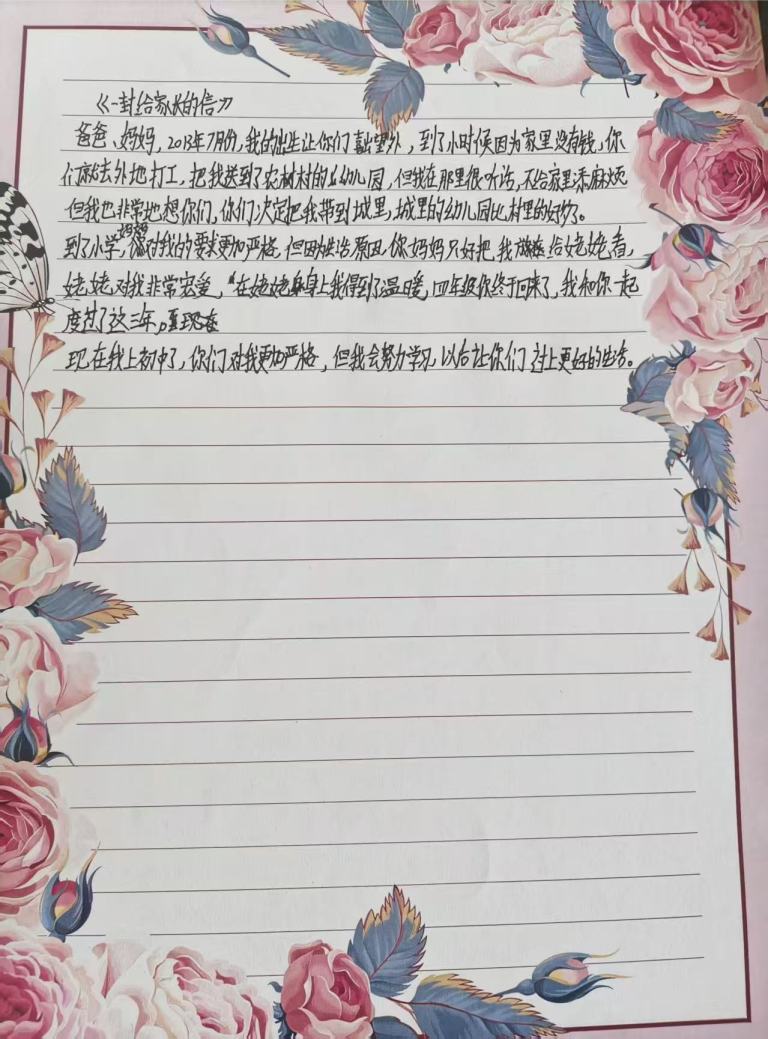 《一封给家长的信》
爸爸、妈妈，2013年7月份，我的出生让你们喜出望外，到了小时候因为家里没有钱，你
们就去外地打工，把我送到了农村的幼儿园，但我在那里很听话，不给家里添麻烦
但我也非常地想你们，你们决定把我带到城里，城里的幼儿园比村里的好多了。
到了小学，妈妈对我的要求更加严格，但因生活原因，你妈妈只好把我给姥姥看，
姥姥对我非常宠爱，在姥姥身上我得到了温暖，四年级你终于回来了，我和你一起
度过了这三年，直到现在
现在我上初中了，你们对我更加严格，但我会努力学习，以后让你们过上更好的生活。